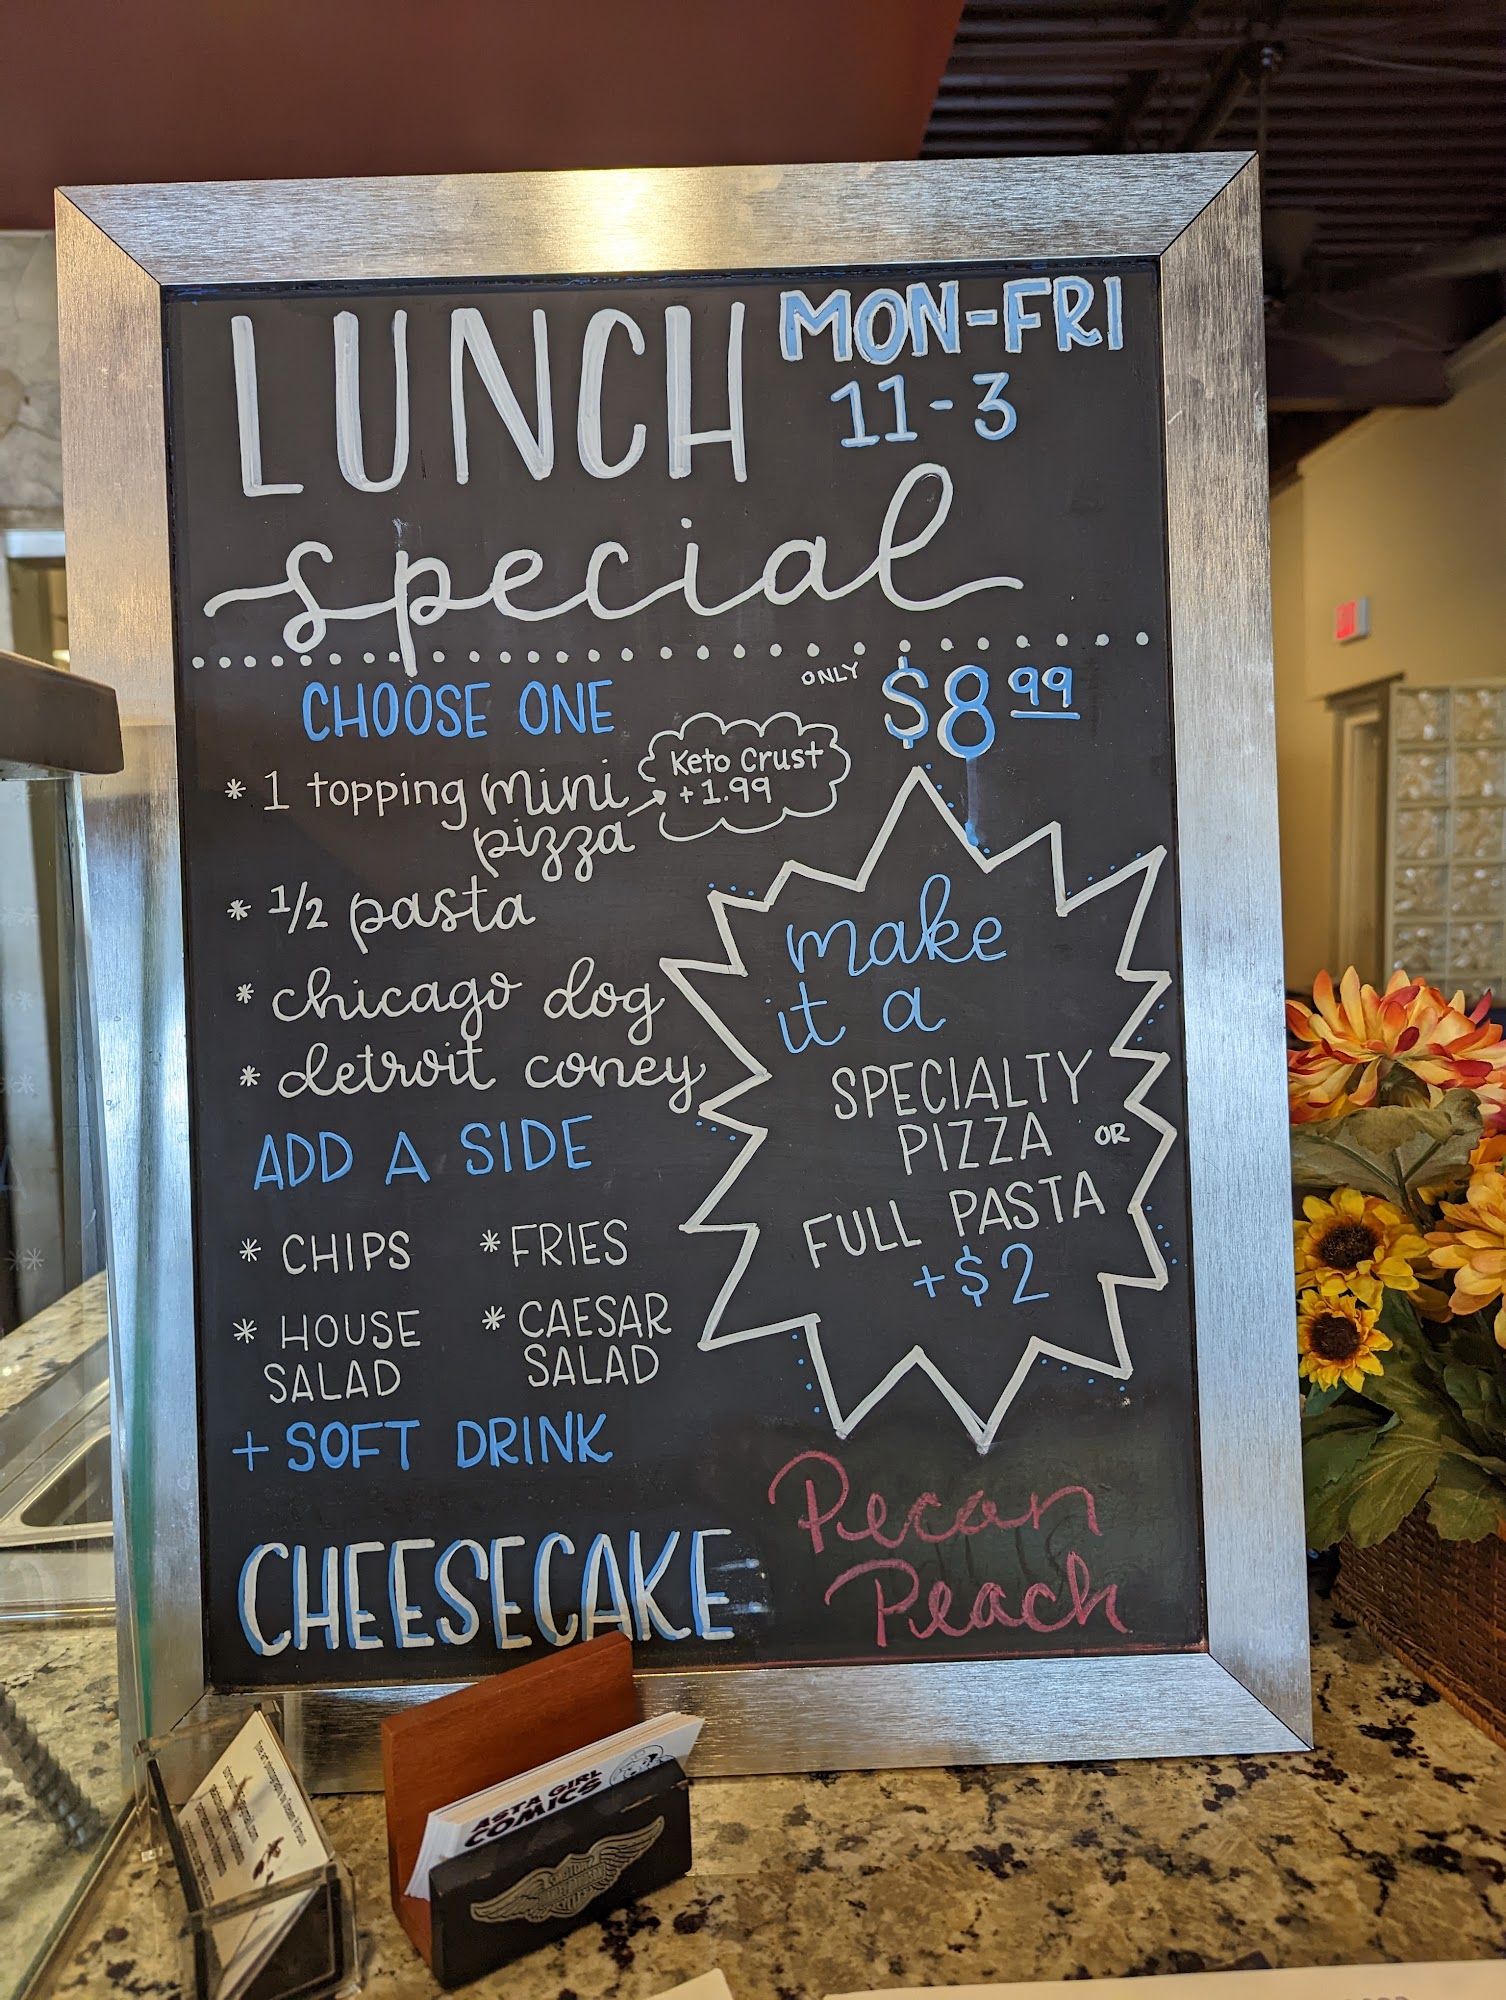 LUNCH
MON-FRI
11-3
special
CHOOSE ONE
ONLY $8.99
* 1 topping mini
pizza
Keto Crust
+1.99
* 1/2 pasta
* chicago dog
* detroit coney
make
it a
SPECIALTY
PIZZA OR
FULL PASTA
+$2
ADD A SIDE
* CHIPS * FRIES
* HOUSE
SALAD
* CAESAR
SALAD
+ SOFT DRINK
CHEESECAKE
Pecan
Peach
ASTA GIRL
COMICS